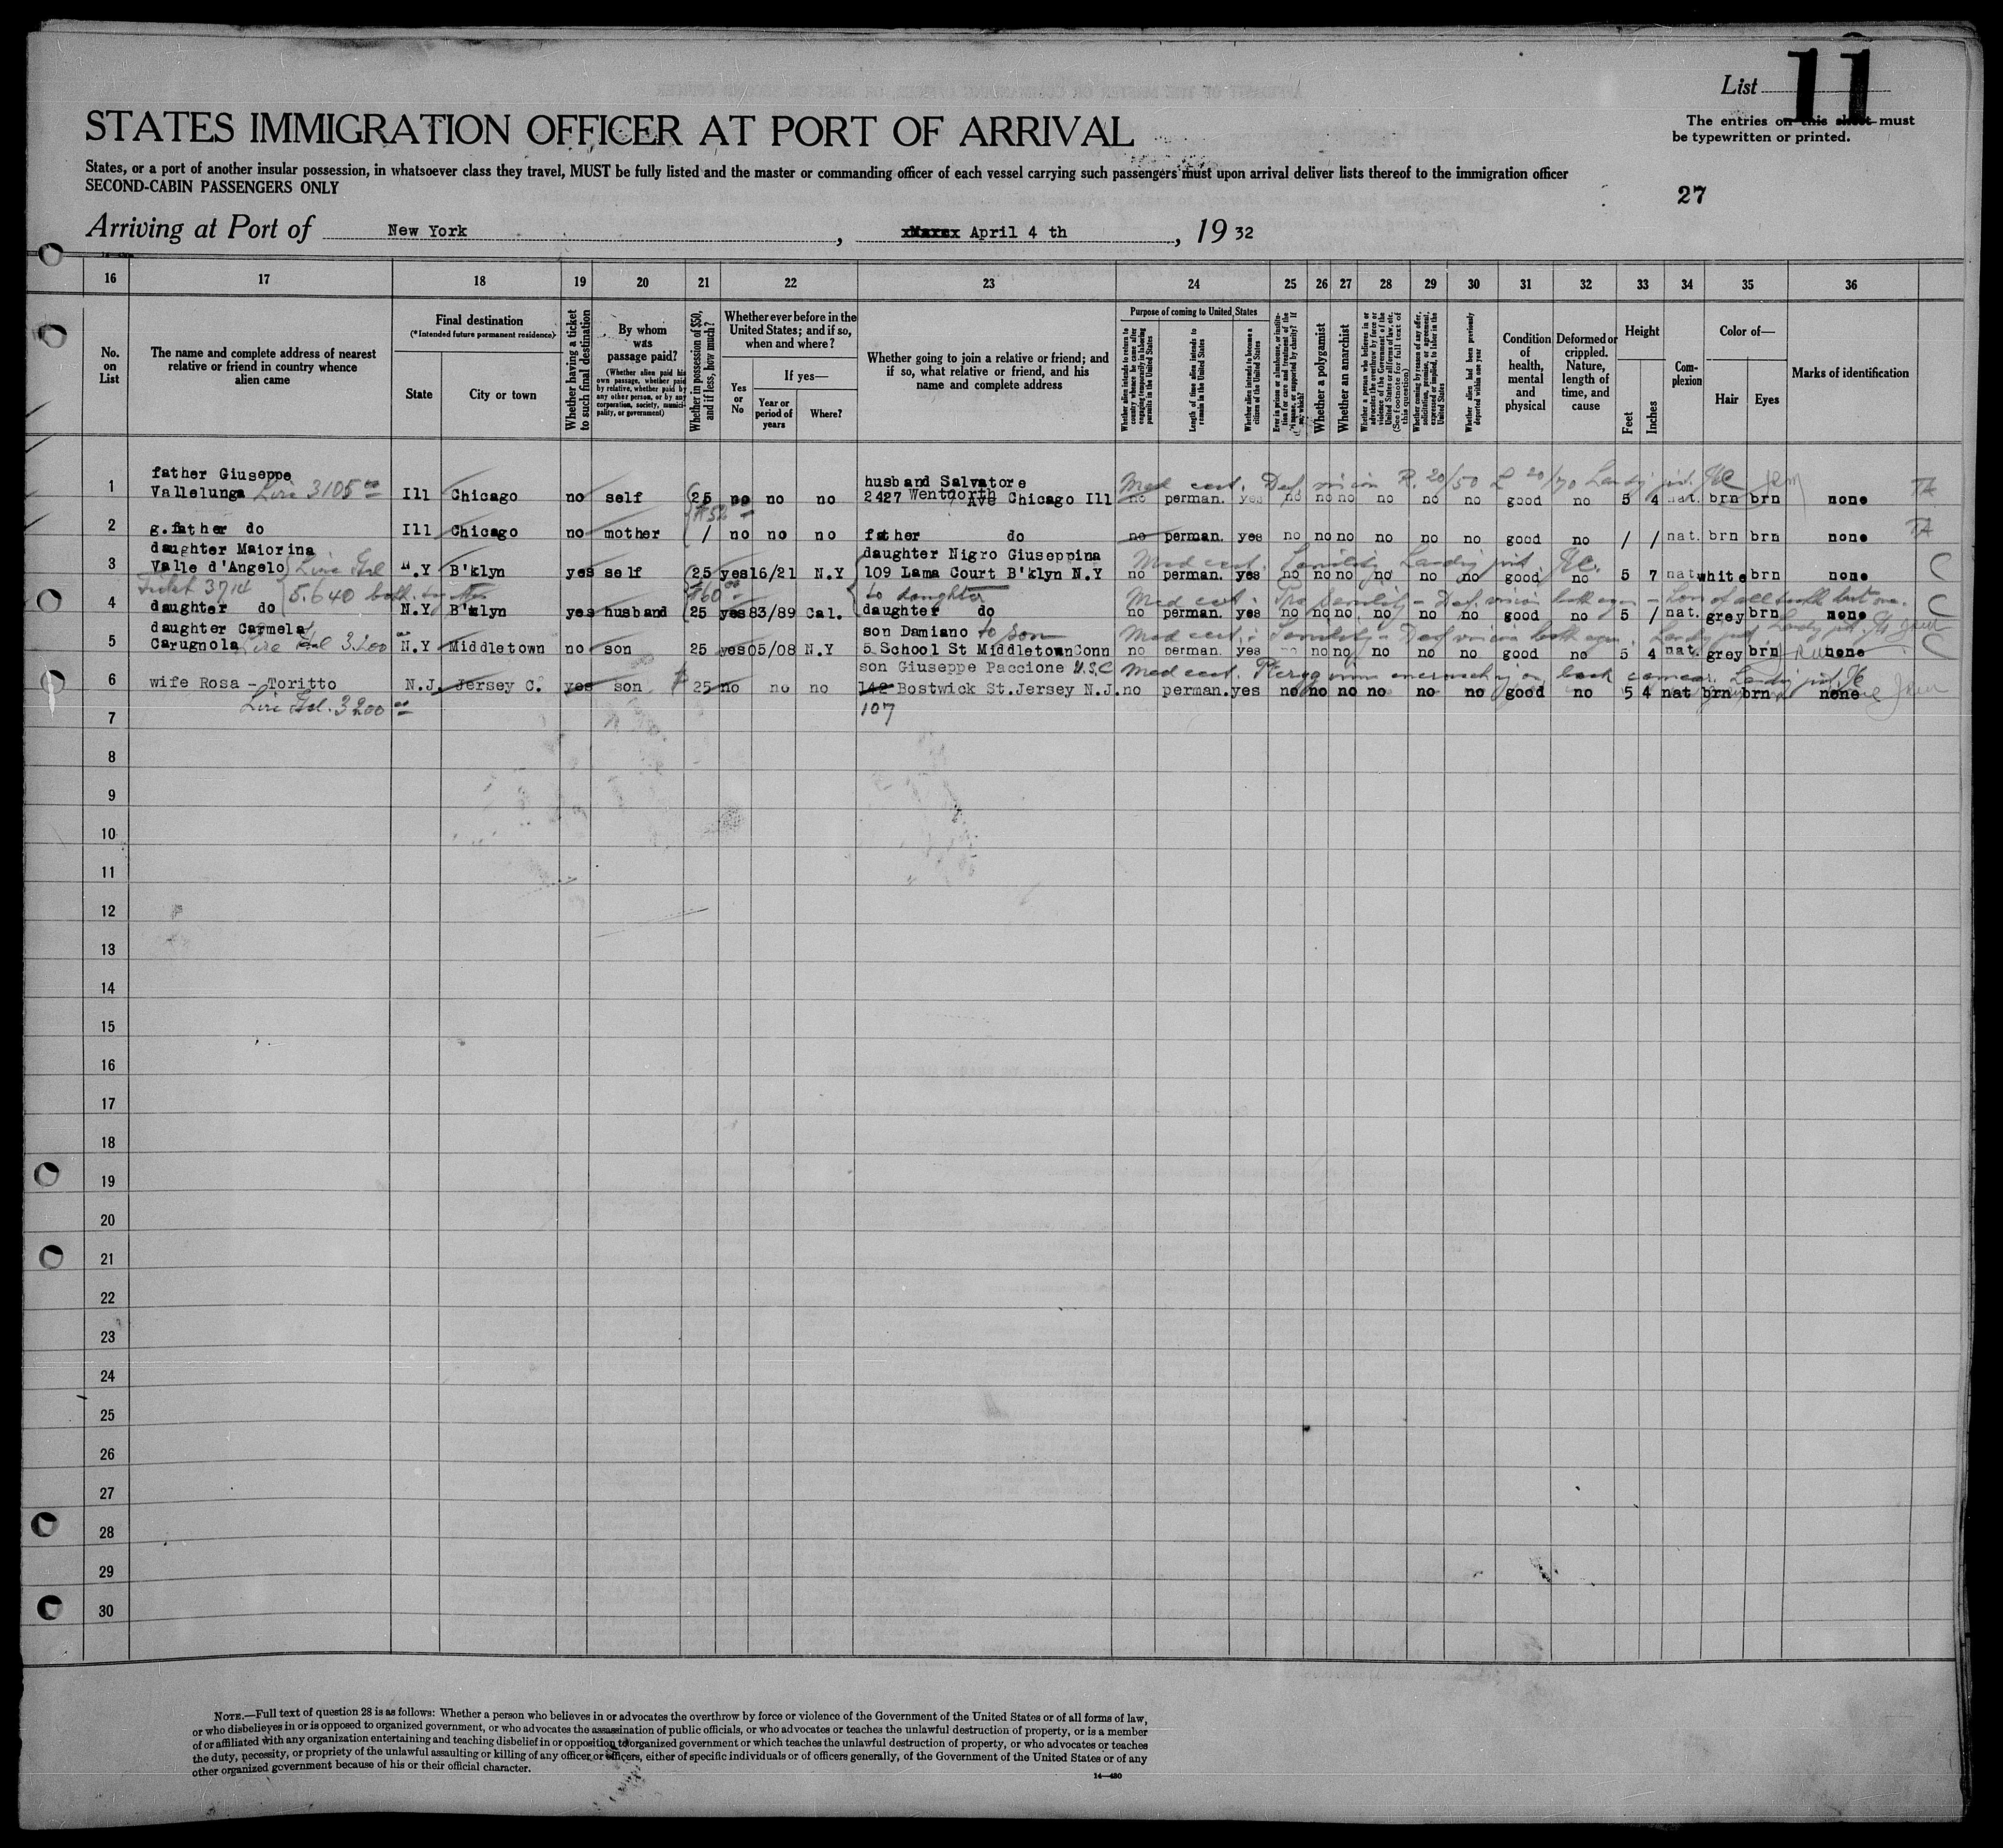 List 11
The entries on this sheet must
be typewritten or printed.
STATES IMMIGRATION OFFICER AT PORT OF ARRIVAL
States, or a port of another insular possession, in whatsoever class they travel, MUST be fully listed and the master or commanding officer of each vessel carrying such passengers must upon arrival deliver lists thereof to the immigration officer
SECOND-CABIN PASSENGERS ONLY
27
Arriving at Port of New York, April 4 th, 19 32
16 17 18 19 20 21 22 23 24 25 26 27 28 29 30 31 32 33 34 35 36
No. on List
The name and complete address of nearest relative or friend in country whence alien came
Final destination
(*Intended future permanent residence)
State
City or town
Whether having a ticket to such final destination
By whom was passage paid?
(Whether alien paid his own passage, whether paid by relative, whether paid by any other person, or by any corporation, society, municipality, or government)
Whether in possession of $50, and if less, how much?
Whether ever before in the United States; and if so, when and where?
Yes or No
If yes—
Year or period of years
Where?
Whether going to join a relative or friend; and if so, what relative or friend, and his name and complete address
Purpose of coming to United States
Whether alien intends to return to country whence he came after engaging temporarily in laboring pursuits in the United States
Length of time alien intends to remain in the United States
Whether alien intends to become a citizen of the United States
Ever in prison or almshouse, or institution for care and treatment of the insane, or supported by charity? If so, which?
Whether a polygamist
Whether an anarchist
Whether a person who believes in or advocates the overthrow by force or violence of the Government of the United States or all forms of law, etc. (See footnote for full text of this question)
Whether coming by reason of any offer, solicitation, promise, or agreement, expressed or implied, to labor in the United States
Whether alien had been previously deported within one year
Condition of health, mental and physical
Deformed or crippled. Nature, length of time, and cause
Height
Feet
Inches
Complexion
Color of—
Hair
Eyes
Marks of identification
father Giuseppe husband Salvatore Med cert. Def vision R. 20/50 L 20/70
1 Vallelunga Lire 3105 00 Ill Chicago no self 25 no no no 2427 Wentworth Ave Chicago Ill no perman. yes no no no no no no good no 5 4 nat. brn brn none TA
$52
2 g.father do Ill Chicago no mother / no no no father do no perman. yes no no no no no no good no / / nat. brn brn none TA
daughter Maiorina daughter Nigro Giuseppina Med cert. Senility
3 Valle d'Angelo N.Y B'klyn yes self 25 yes 16/21 N.Y 109 Lama Court B'klyn N.Y no perman. yes no no no no no no good no 5 7 nat white brn none C
Ticket 3714 5.640 both $60 to daughter Med cert. Senility - Def. vision both eyes - Loss of all teeth but one.
4 daughter do N.Y B'klyn yes husband 25 yes 83/89 Cal. daughter do no perman. yes no no no no no no good no 5 / nat. grey brn none C
daughter Carmela son Damiano to son Med cert. Senility - Def vision both eyes.
5 Carugnola 3.200 00 N.Y Middletown no son 25 yes 05/08 N.Y 5 School St Middletown Conn no perman. yes no no no no no no good no 5 4 nat. grey brn none C
son Giuseppe Paccione U.S.C Med cert.
6 wife Rosa - Toritto N.J. Jersey C. yes son $ 25 no no no 142 Bostwick St.Jersey N.J. no perman. yes no no no no no no good no 5 4 nat brn brn none
3200 00 107
7
8
9
10
11
12
13
14
15
16
17
18
19
20
21
22
23
24
25
26
27
28
29
30
NOTE.—Full text of question 28 is as follows: Whether a person who believes in or advocates the overthrow by force or violence of the Government of the United States or of all forms of law,
or who disbelieves in or is opposed to organized government, or who advocates the assassination of public officials, or who advocates or teaches the unlawful destruction of property, or is a member
of or affiliated with any organization entertaining and teaching disbelief in or opposition to organized government or which teaches the unlawful destruction of property, or who advocates or teaches
the duty, necessity, or propriety of the unlawful assaulting or killing of any officer or officers, either of specific individuals or of officers generally, of the Government of the United States or of any
other organized government because of his or their official character.
14—430